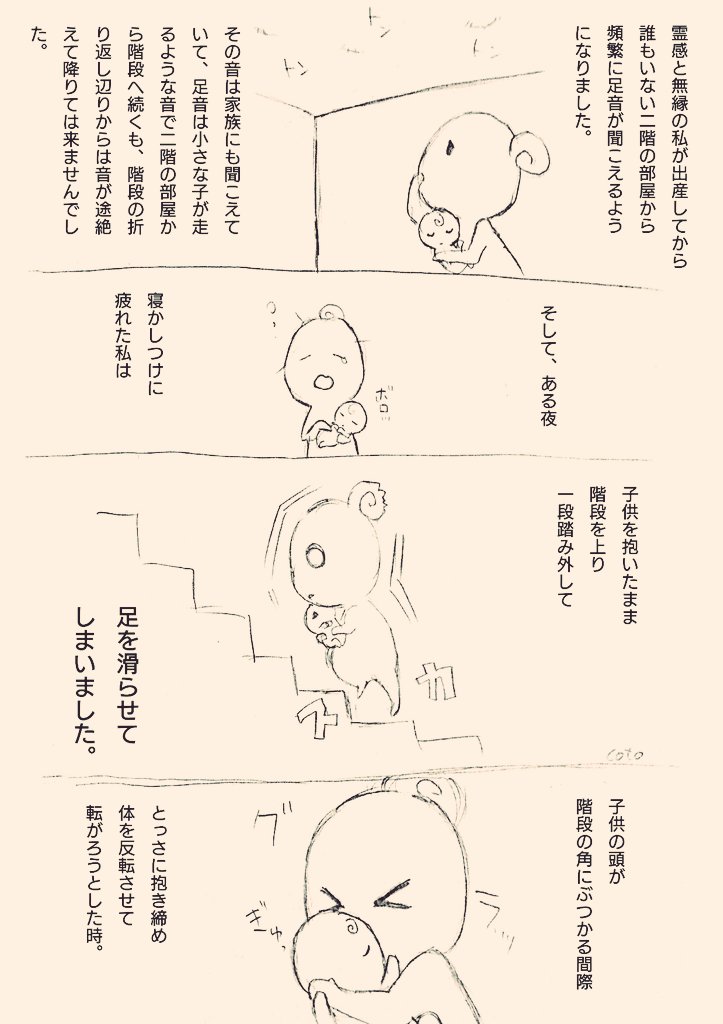 霊感と無縁の私が出産してから
誰もいない二階の部屋から
頻繁に足音が聞こえるよう
になりました。
トン
トン
トン
その音は家族にも聞こえて
いて、足音は小さな子が走
るような音で二階の部屋か
ら階段へ続くも、階段の折
り返し辺りからは音が途絶
えて降りては来ませんでし
た。
そして、ある夜
ボロッ
寝かしつけに
疲れた私は
子供を抱いたまま
階段を上り
一段踏み外して
ズ
カ
足を滑らせて
しまいました。
coto
子供の頭が
階段の角にぶつかる間際
グ
ラッ
ぎゅっ
とっさに抱き締め
体を反転させて
転がろうとした時。